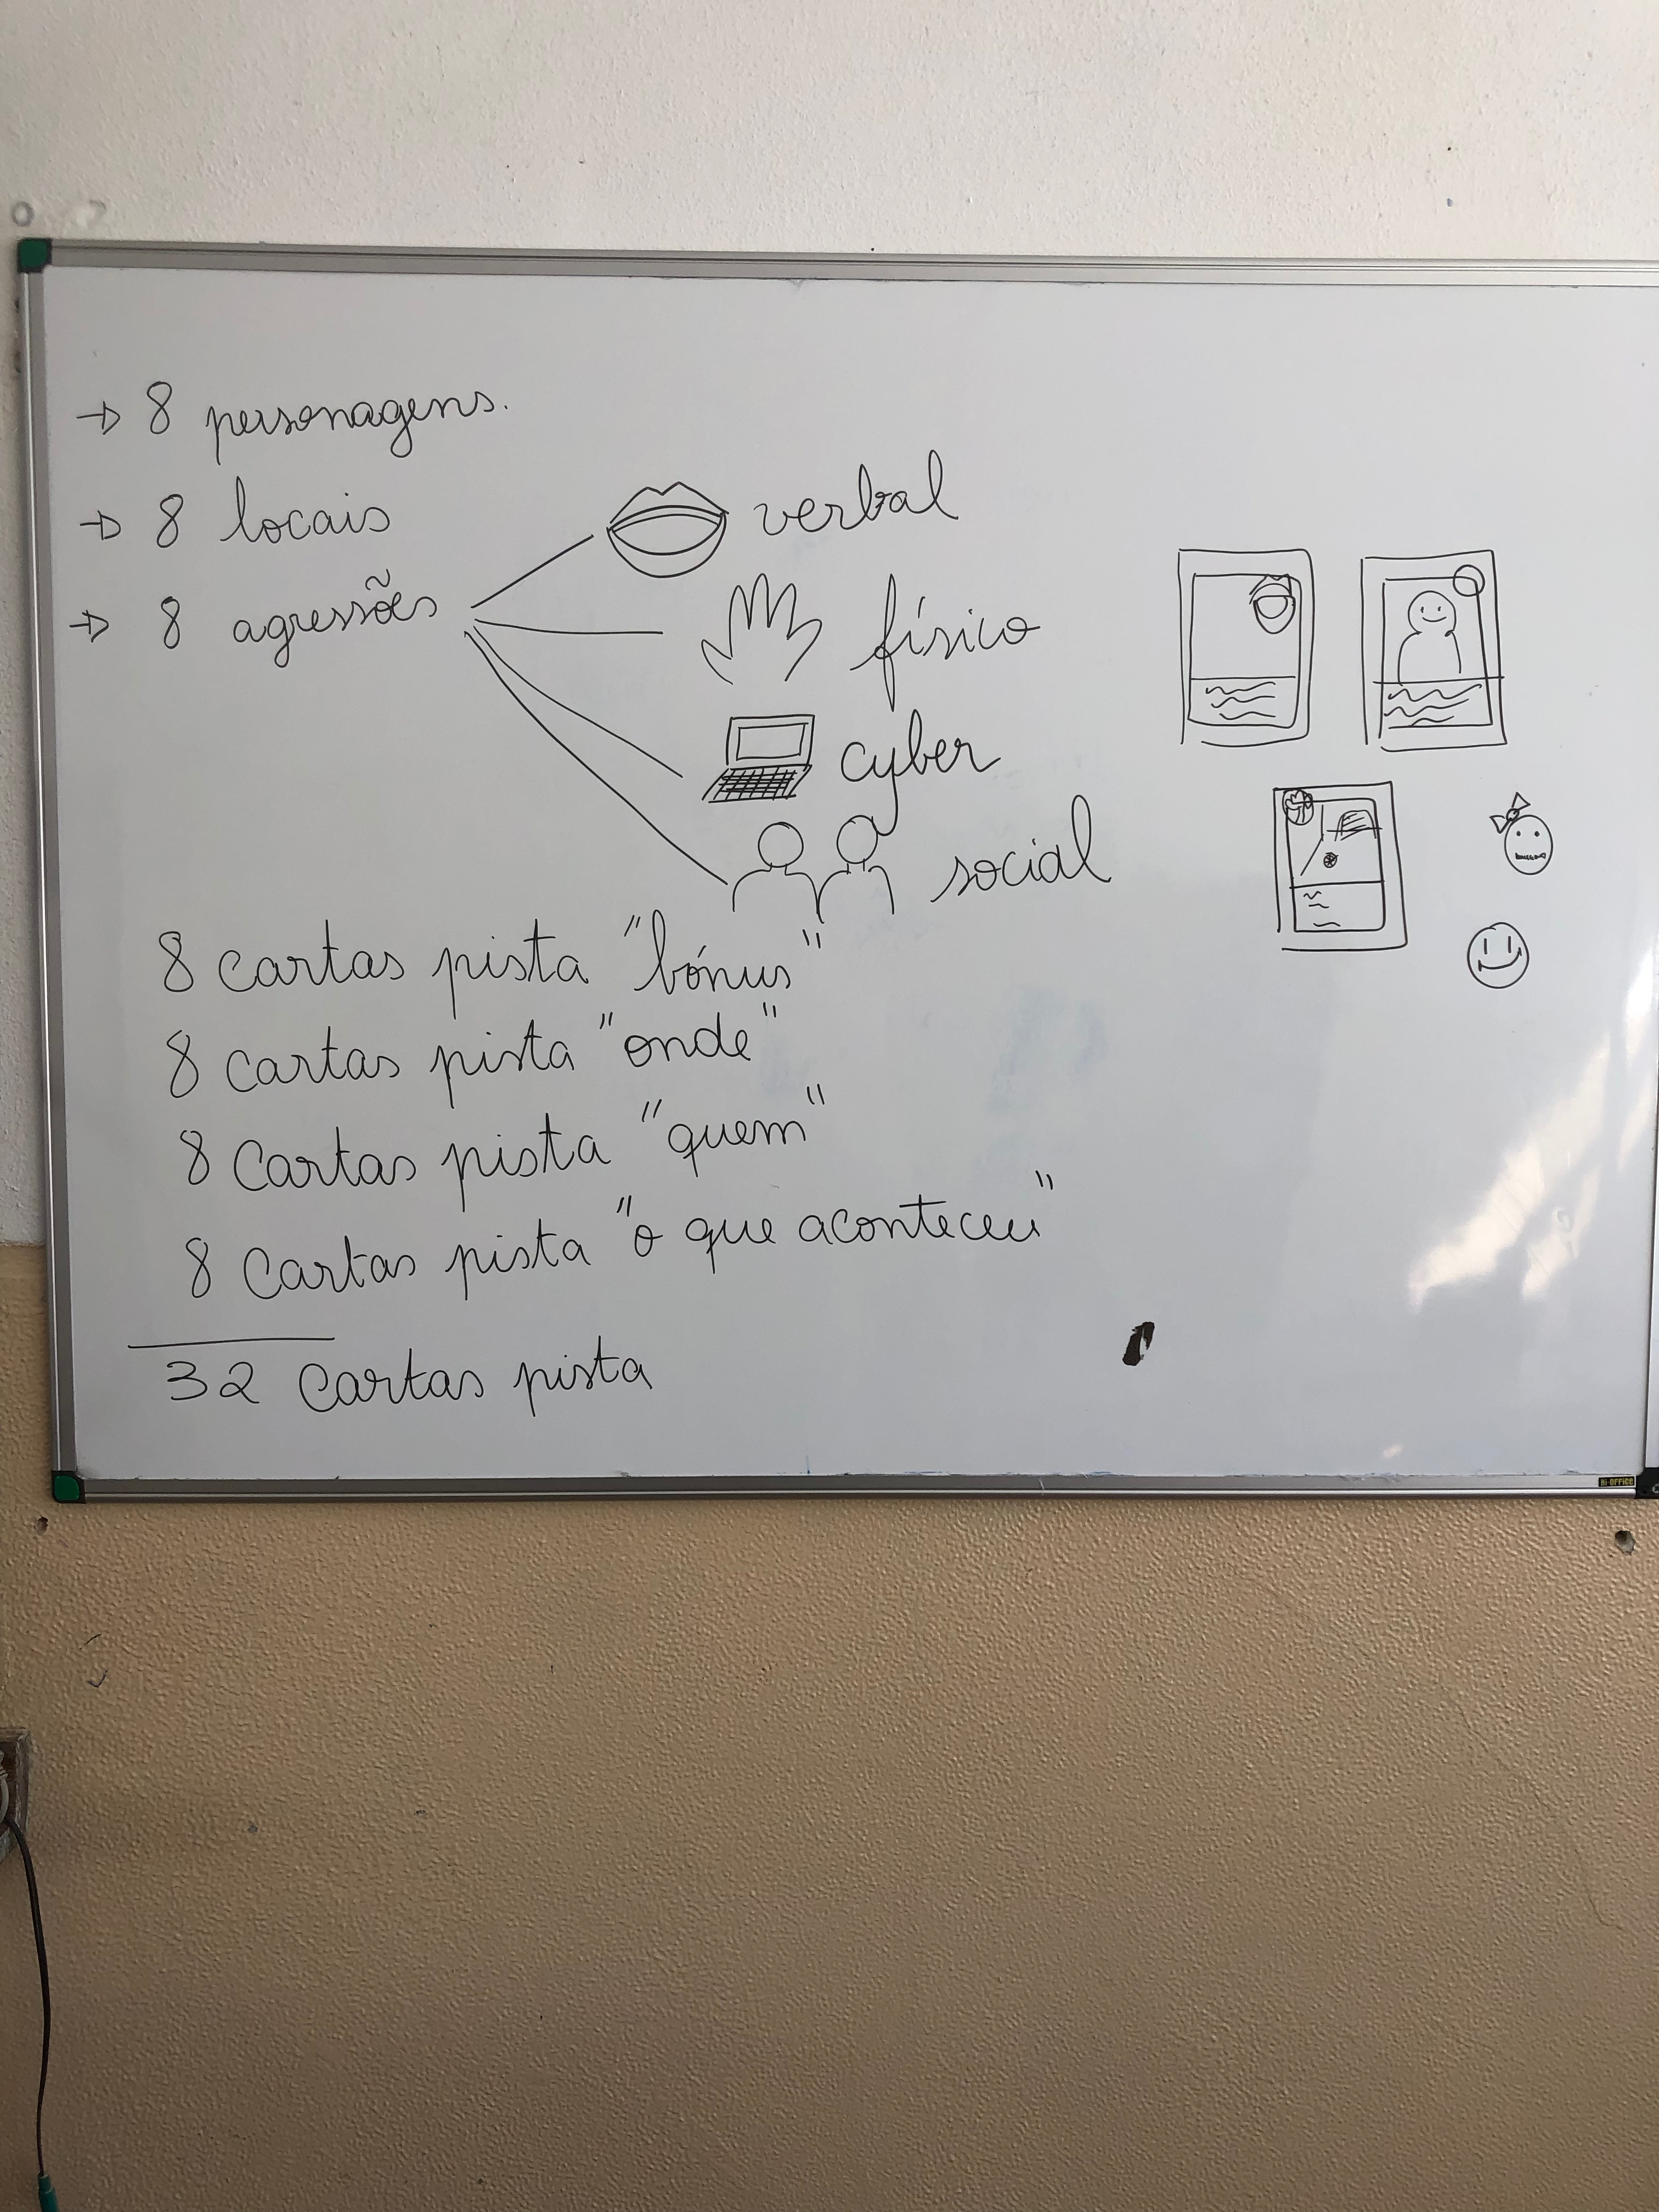 → 8 personagens.
→ 8 locais
→ 8 agressões
verbal
físico
cyber
social
8 cartas pista "bónus"
8 cartas pista "onde"
8 cartas pista "quem"
8 cartas pista "o que aconteceu"
32 cartas pista
Bi-OFFICE